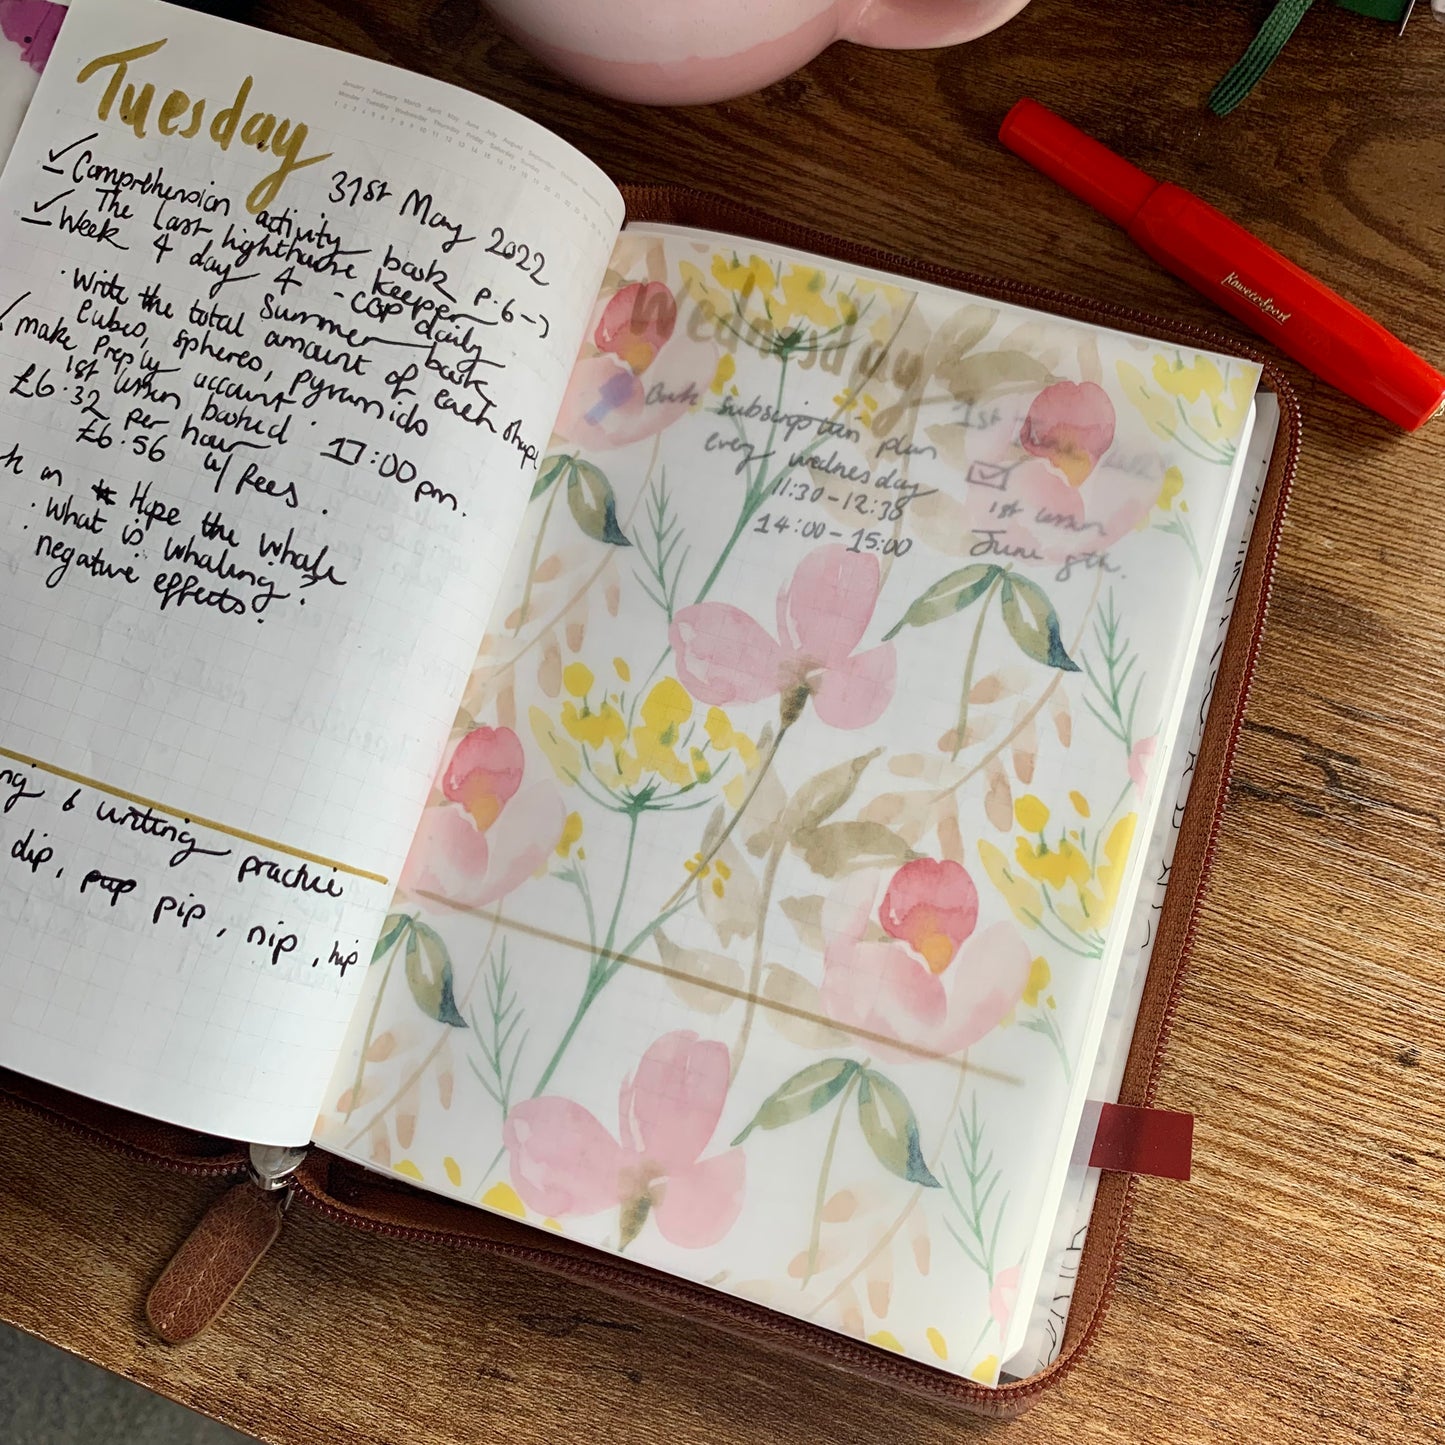 Tuesday
January February March April May June July August September
Monday Tuesday Wednesday Thursday Friday Saturday Sunday
31st May 2022
Comprehension activity book p.6 →
The last lighthouse keeper
Week 4 day 4 - CGP daily
Summer book
· Write the total amount of each shape
Cubes, spheres, pyramids
make Preply account.
1st lesson booked 17:00 pm.
£6.32 per hour
£6.56 w/ fees.
Hope the whale
· What is whaling?
· negative effects.
& writing practice
dip, pap pip, nip, hip
Wednesday
subscription plan
every wednesday
11:30-12:30
14:00-15:00
1st
1st lesson
June 8th.
Kaweco Sport